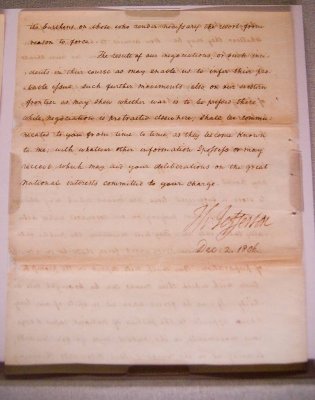 the burthens on those who render necessary the resort from
reason to force.
The result of our negociations, or such inci-
dents in their course as may enable us to infer their pro-
bable issue; such further movements also on our western
frontier as may shew whether war is to be pressed there
while negociation is protracted elsewhere, shall be commu-
nicated to you from time to time as they become known
to me, with whatever other information I possess or may
recieve, which may aid your deliberations on the great
national interests committed to your charge.
Th: Jefferson
Dec. 2. 1806.